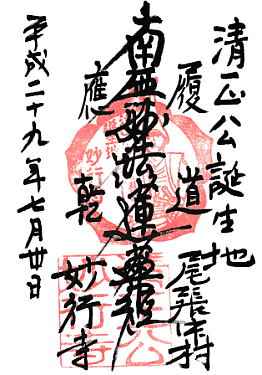 清正公誕生地
尾張中村
履道
南無妙法蓮華経
應乾
妙行寺
平成二十九年七月廿日